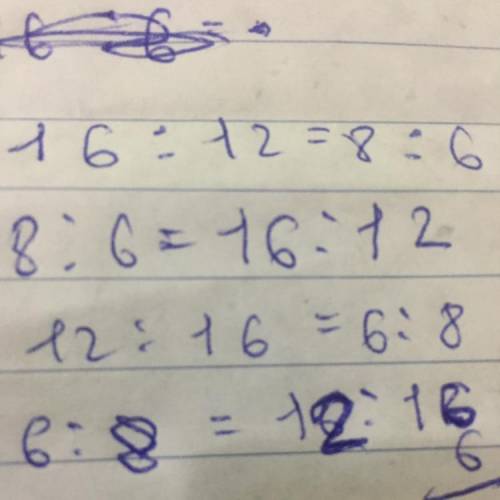 16 ÷ 12 = 8 ÷ 6
8 ÷ 6 = 16 ÷ 12
12 ÷ 16 = 6 ÷ 8
6 ÷ 8 = 12 ÷ 16
6